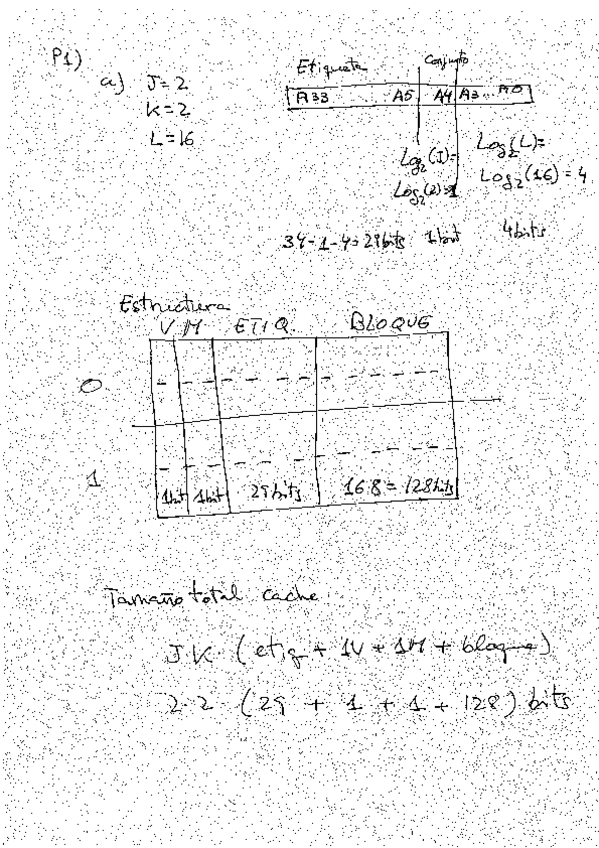 P1)
a) J=2
K=2
L=16
Etiqueta Conjunto
A33 A5 A4 A3.. A0
Log2(J)= Log2(L)=
Log2(2)=1 Log2(16)=4
34-1-4=29bits 1bit 4bits
Estructura
V M ETIQ. BLOQUE
0
1
1bit 1bit 29bits 16·8=128bits
Tamaño total cache
J·K·(etiq + 1V + 1M + bloque)
2·2 (29 + 1 + 1 + 128) bits